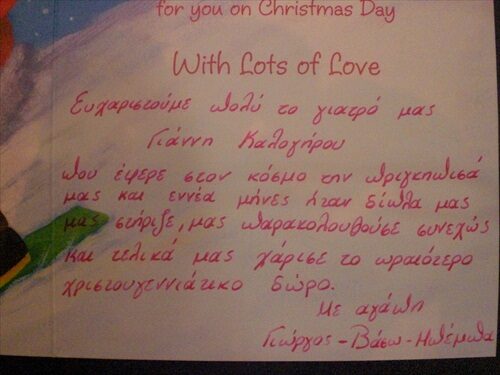 for you on Christmas Day
With Lots of Love
Ευχαριστούμε πολύ το γιατρό μας
Γιάννη Καλογήρου
που έφερε στον κόσμο την πριγκήπισά
μας και εννέα μήνες ήταν δίπλα μας
μας στήριξε, μας παρακολουθούσε συνεχώς
και τελικά μας χάρισε το ωραιότερο
χριστουγεννιάτικο δώρο.
Με αγάπη
Γιώργος - Βάσω - Ηπέμπα